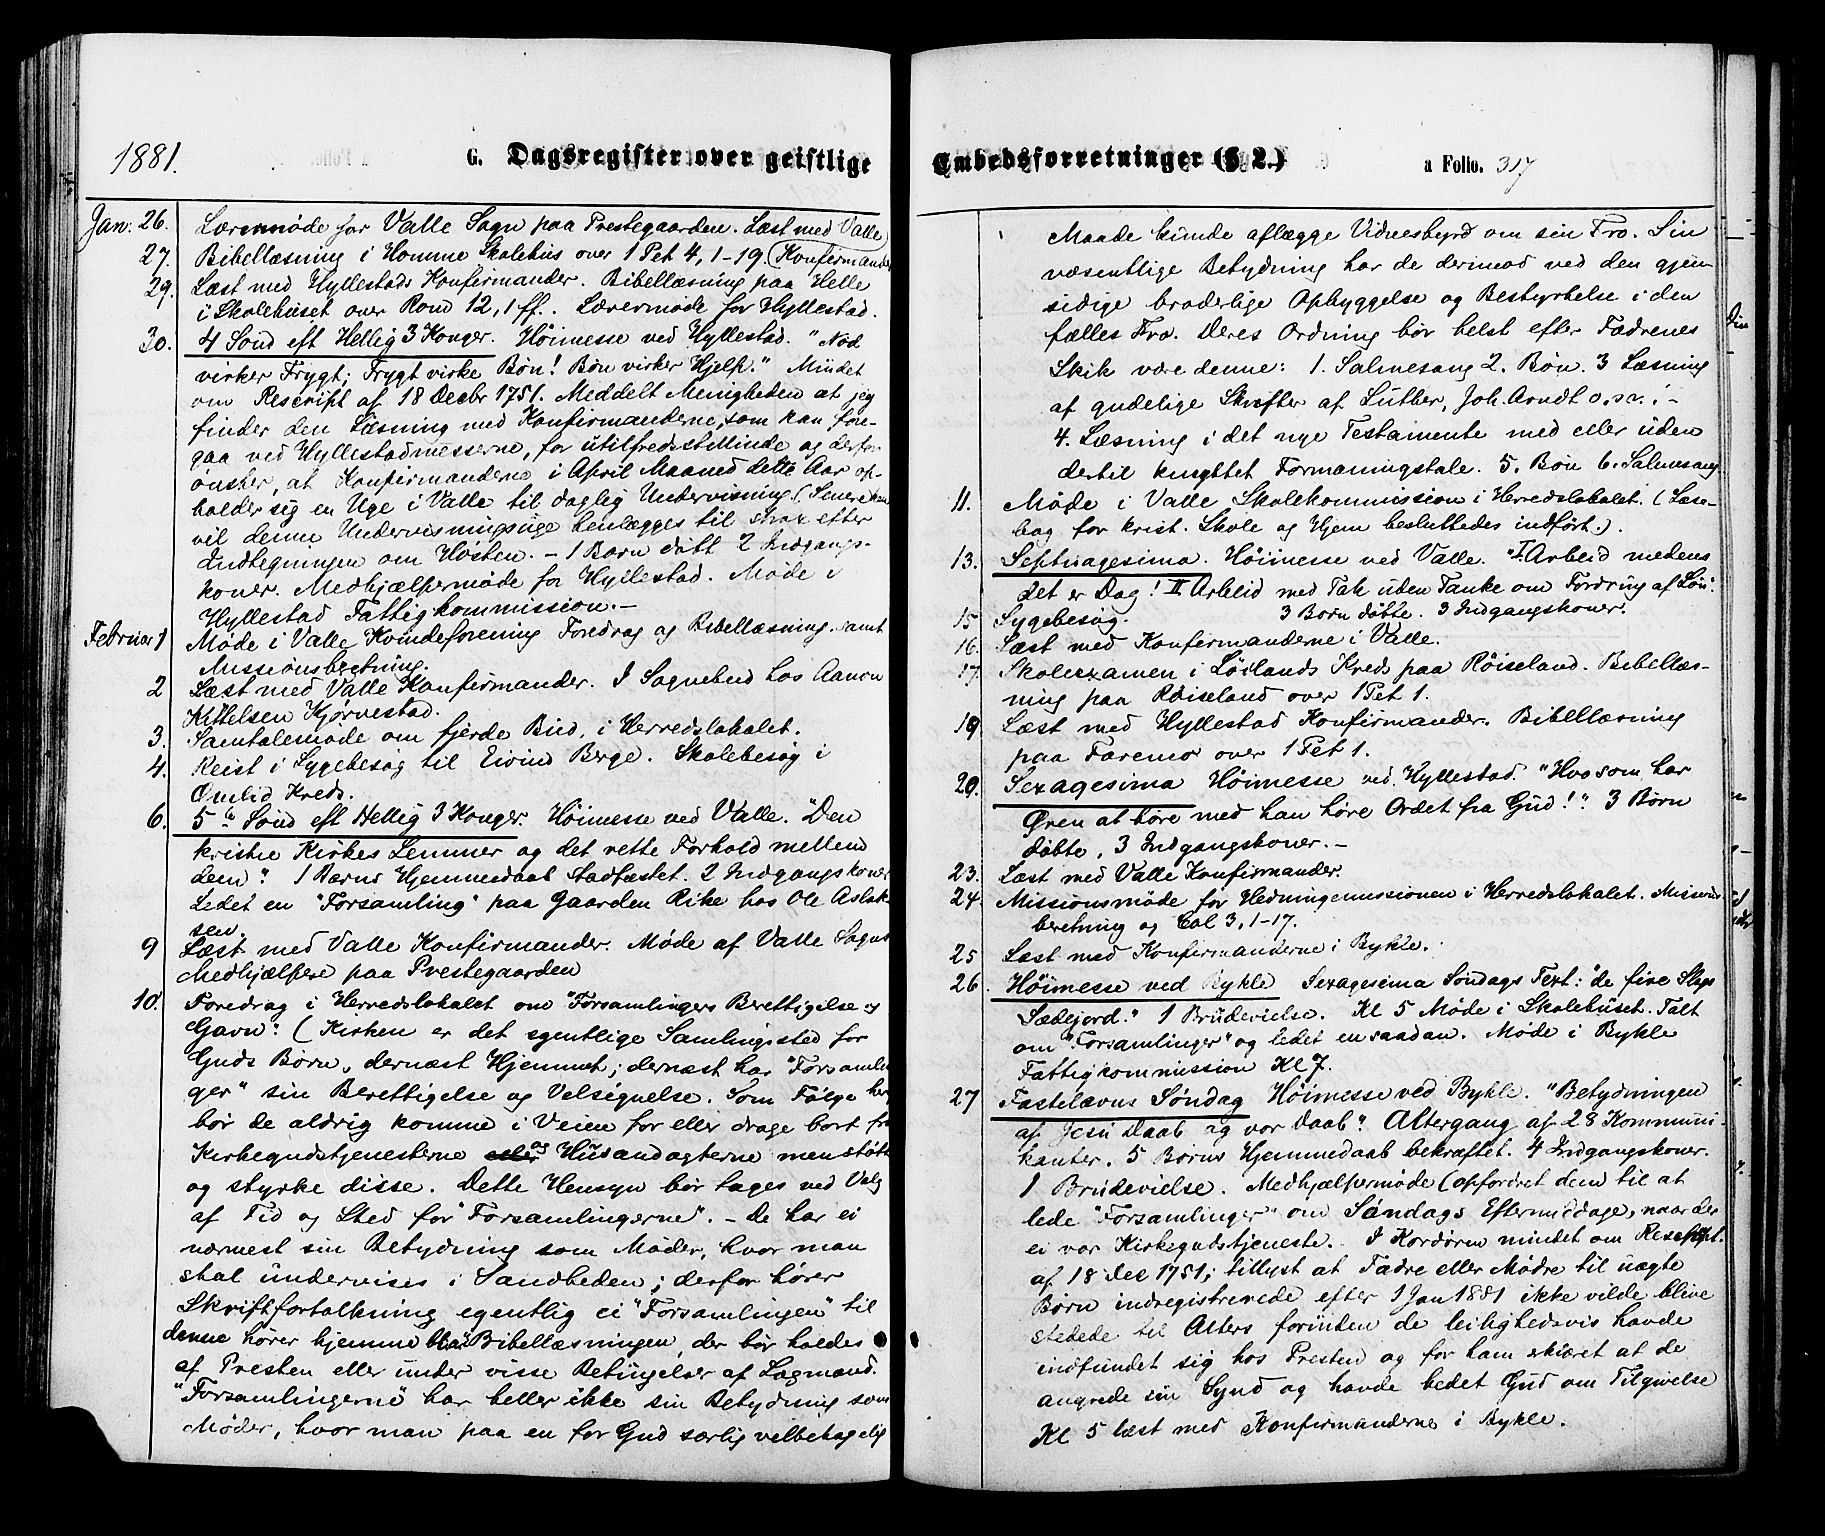 1881.
G. Dagsregister over geistlige
Jan: 26. Lærermøde for Valle Sogn paa Prestegaarden. Læst med Valle
27. Bibellæsning i Homme Skolehus over 1 Pet 4, 1-19. Konfirmander
29. Læst med Hyllestads Konfirmander. Bibellæsning paa Helle
i Skolehuset over Rom 12, 1 ff. Lærermøde for Hyllestad.
30. 4 Sønd eft Hellig 3 Konger. Höimesse ved Hyllestad. "Nød
virker Frygt; Frygt virke Bøn! Bøn virker Hjelp." Mindet
om Rescript af 18 Decbr 1751. Meddelt Menigheden at jeg
finder den Læsning med Konfirmanderne, som kan fore-
gaa ved Hyllestadmesserne, for utilfredsstillinde og derfor
ønsker, at Konfirmanderne i April Maaned dette Aar op-
holder sig en Uge i Valle til daglig Undervisning (Senere
vil denne Undervisningsuge henlægges til strax efter
Indhegningen om Høsten. - 1 Barn døbt 2 Indgangs-
koner. Medhjælpermøde for Hyllestad. Møde i
Hyllestad Fattigkommission. -
Februar 1 Møde i Valle Kvindeforening Foredrag og Bibellæsning samt
Missionsberetning.
2 Læst med Valle Konfirmander. I Sognebud hos Aanon
Kittelsen Kjørvestad.
3. Samtalemøde om fjerde Bud, i Herredslokalet.
4. Reist i Sygebesøg til Eivind Berge. Skolebesøg i
Omlid Kreds.
6. 5te Sønd eft Hellig 3 Konger. Höimesse ved Valle. "Den
kristne Kirkes Lemmer og det rette Forhold mellem
dem". 1 Barns Hjemmedaab stadfæstet. 2 Indgangskoner
Ledet en "Forsamling" paa Gaarden Rike hos Ole Aslak
sen.
9 Læst med Valle Konfirmander. Møde af Valle Sogns
Medhjælpere paa Prestegaarden
10. Foredrag i Herredslokalet om "Forsamlingers Berettigelse og
Gavn": (Kirken er det egentlige Samlingssted for
Guds Børn, dernæst Hjemmet; dernæst har "Forsamlin
ger" sin Berettigelse og Velsignelse. Som Følge her
bør de aldrig komme i Veien for eller drage bort fra
Kirkegudstjenesterne og Husandagterne men støtte
og styrke disse. Dette Hensyn bør tages ved Valg
af Tid og Sted for "Forsamlingerne". - De har ei
nærmest sin Betydning som Møder, hvor man
skal undervises i Sandheden; derfor hører
Skriftfortolkning egentlig ei "Forsamlingen" til
denne hører hjemme i Bibellæsningen, der bør holdes
af Presten eller under visse Betingelser af Lægmand.
"Forsamlingerne" har heller ikke sin Betydning som
Møder, hvor man paa en for Gud særlig velbehagelig
Embedsforretninger (§ 2.)
a Folio. 317
Maade kunde aflægge Vidnesbyrd om sin Tro. Sin
væsentlige Betydning har de derimod ved den gjen-
sidige broderlige Opbyggelse og Bestyrkelse i den
fælles Tro. Deres Ordning bør helst efter Fædrenes
Skik være denne: 1. Salmesang 2. Bøn. 3 Læsning
af gudelige Skrifter af Luther, Joh. Arndt o. s. v. ; -
4. Læsning i det nye Testamente med eller uden
dertil knyttet Formaningstale. 5. Bøn 6. Salmesang.
11. Møde i Valle Skolekommission i Herredslokalet. (Læse-
bog for krist. Skole og Hjem besluttedes indført.).
13. Septuagesima. Höimesse ved Valle. "I. Arbeid medens
det er Dag! II Arbeid med Tak uden Tanke om Fordring af Løn".
3 Børn døbte. 3 Indgangskoner.
15 Sygebesøg.
16. Læst med Konfirmanderne i Valle.
17. Skolexamen i Løilands Kreds paa Røiseland. Bibellæs-
ning paa Røiseland over 1 Pet 1.
19 Læst med Hyllestad Konfirmander. Bibellæsning
paa Faremo over 1 Pet 1.
20. Sexagesima Höimesse ved Hyllestad. "Hvo som har
Øren at høre med han høre Ordet fra Gud!" 3 Børn
døbte, 3 Indgangskoner. -
23. Læst med Valle Konfirmander.
24. Missionsmøde for Hedningemissionen i Herredslokalet. Missions
beretning og Col 3, 1-17.
25 Læst med Konfirmanderne i Bykle.
26. Höimesse ved Bykle Sexagesima Søndags Text: "de fire Slags
Sædejord." 1 Brudevielse. Kl 5 Møde i Skolehuset. Talt
om "Forsamlinger" og ledet en saadan. Møde i Bykle
Fattigkommission Kl 7.
27 Fastelavns Søndag Höimesse ved Bykle. "Betydningen
af Jesu Daab og vor Daab". Altergang af 28 Kommuni-
kanter. 5 Børns Hjemmedaab bekræftet. 4 Indgangskoner.
1 Brudevielse. Medhjælpermøde (opfordret dem til at
lede "Forsamlinger" om Søndags Eftermiddage, naar der
ei var Kirkegudstjeneste. I Kordøren mindet om Rescript.
af 18 Dec 1751; tillyst at Fædre eller Mødre til uægte
Børn indregistrerede efter 1 Jan 1881 ikke vilde blive
stedede til Alters forinden de leilighedsvis havde
indfundet sig hos Presten og for ham erklæret at de
angrede sin Synd og havde bedet Gud om Tilgivelse
Kl 5 læst med Konfirmanderne i Bykle.